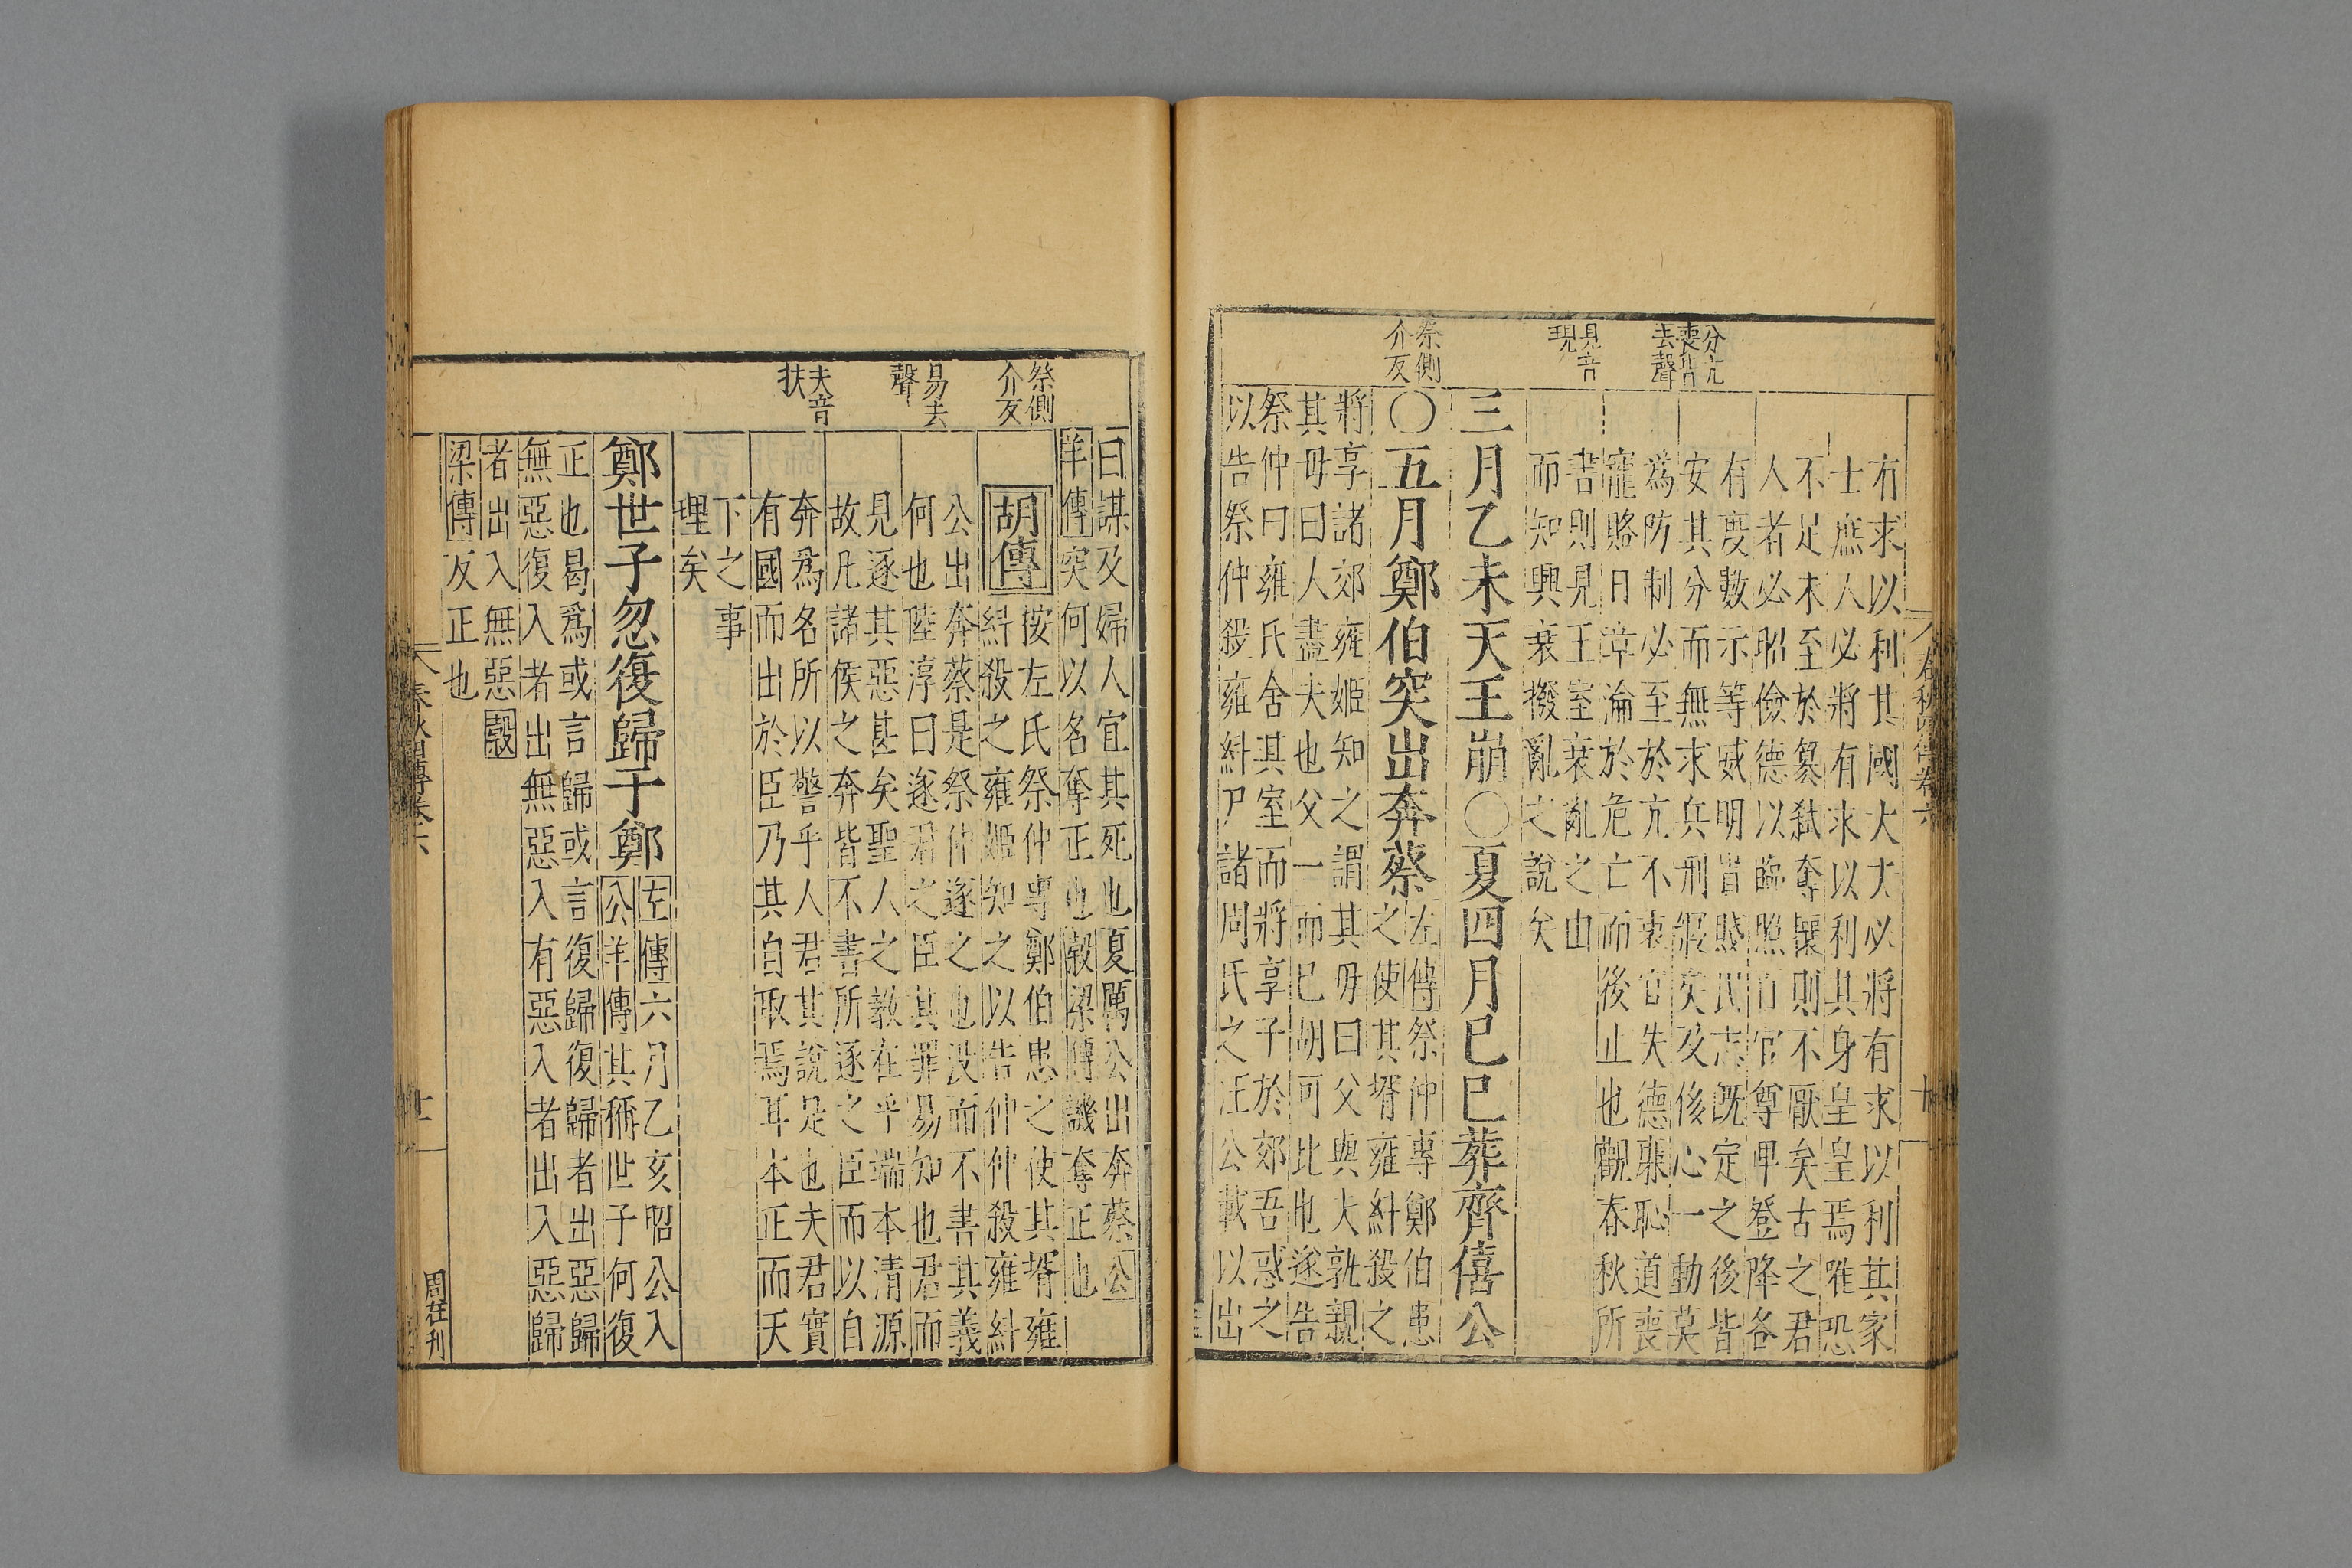 分亢
喪皆
去聲
見音
現
祭側
介反
有求以利其國大夫必將有求以利其家
士庶人必將有求以利其身皇皇焉唯恐
不足未至於篡弑奪攘則不厭矣古之君
人者必昭儉德以臨照百官尊卑登降各
有度數示等威明貴賤民志既定之後皆
安其分而無求兵刑寢矣及侈心一動莫
為防制必至於亢不衷官失德棄恥道喪
寵賂日章淪於危亡而後止也觀春秋所
書則見王室衰亂之由
而知興衰撥亂之說矣
三月乙未天王崩〇夏四月己巳葬齊僖公
〇五月鄭伯突出奔蔡
左傳祭仲專鄭伯患
之使其壻雍糾殺之
將享諸郊雍姬知之謂其母曰父與夫孰親
其母曰人盡夫也父一而已胡可比也遂告
祭仲曰雍氏舍其室而將享子於郊吾惑之
以告祭仲殺雍糾尸諸周氏之汪公載以出
春秋四傳卷六
十
祭側
介反
易去
聲
夫音
扶
曰謀及婦人宜其死也夏厲公出奔蔡公
羊傳突何以名奪正也穀梁傳譏奪正也
胡傳
按左氏祭仲專鄭伯患之使其壻雍
糾殺之雍姬知之以告仲仲殺雍糾
公出奔蔡是祭仲逐之也沒而不書其義
何也陸淳曰逐君之臣其罪易知也君而
見逐其惡甚矣聖人之教在乎端本清源
故凡諸侯之奔皆不書所逐之臣而以自
奔為名所以警乎人君其說是也夫君實
有國而出於臣乃其自取焉耳本正而天
下之事
理矣
鄭世子忽復歸于鄭
左傳六月乙亥昭公入
公羊傳其稱世子何復
正也曷為或言歸或言復歸復歸者出惡歸
無惡復入者出無惡入有惡入者出入惡歸
者出入無惡穀
梁傳反正也
春秋四傳卷六
十一
周在刊